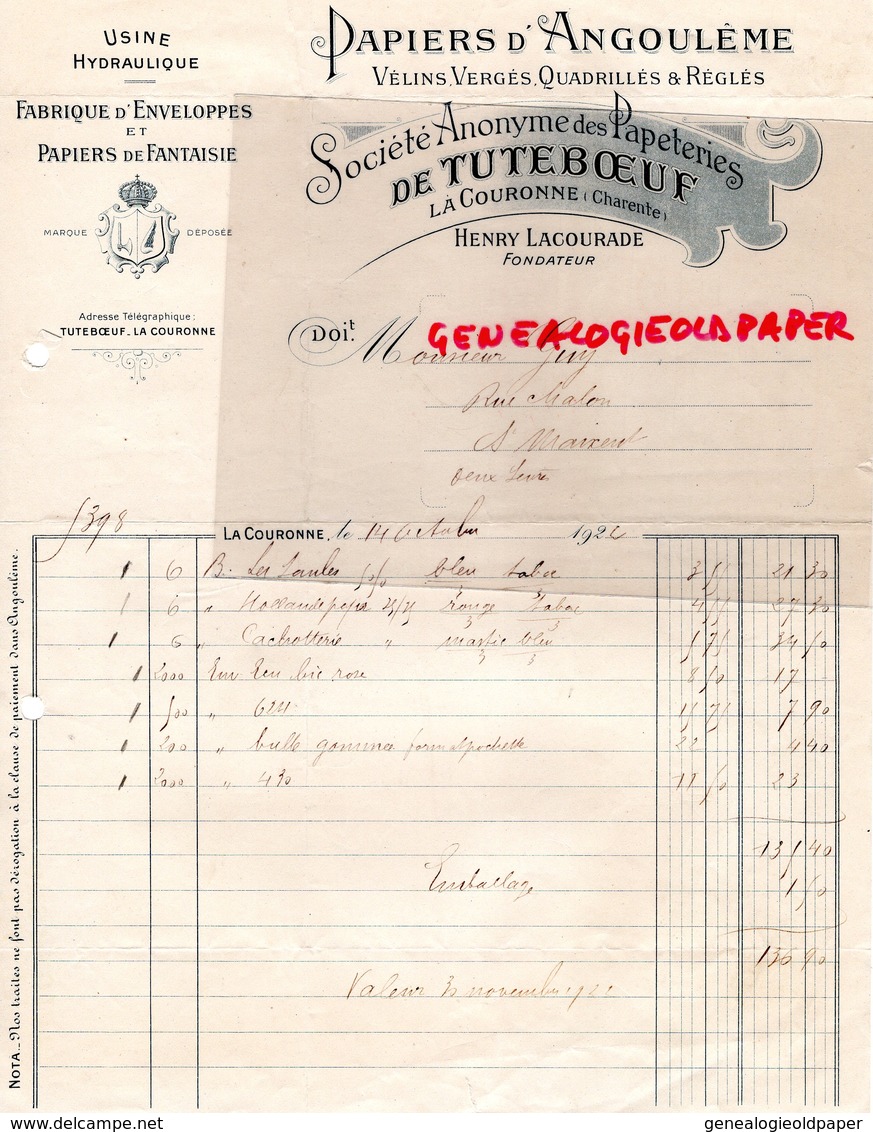 USINE
HYDRAULIQUE
FABRIQUE D'ENVELOPPES
ET
PAPIERS DE FANTAISIE
MARQUE DÉPOSÉE
Adresse Télégraphique:
TUTEBŒUF_LA COURONNE
PAPIERS D'ANGOULÊME
VÉLINS, VERGÉS, QUADRILLÉS & RÉGLÉS
Société Anonyme des Papeteries
DE TUTEBŒUF
LA COURONNE (Charente)
HENRY LACOURADE
FONDATEUR
GENEALOGIEOLDPAPER
Doit. Monsieur Guy
Rue Chalon
St Maixent
Deux Sèvres
5398
LA COURONNE, le 14 Octobre 1922
1 6 B. Les Saules 50/50 bleu tabac 3 55 21 30
1 6 " 25/25 rouge tabac 4 55 27 30
1 6 " Cachotterie " mastic bleu 5 75 34 50
1 2000 Env rose 8 50 17
1 500 " 624 15 75 7 90
1 200 " bulle gommée format pochette 22 4 40
1 2000 " 430 11 50 23
135 40
Emballage 1 50
136 90
Valeur 30 novembre 1922
NOTA._ Nos traites ne font pas dérogation à la clause de paiement dans Angoulême.
genealogieoldpaper genealogieoldpaper